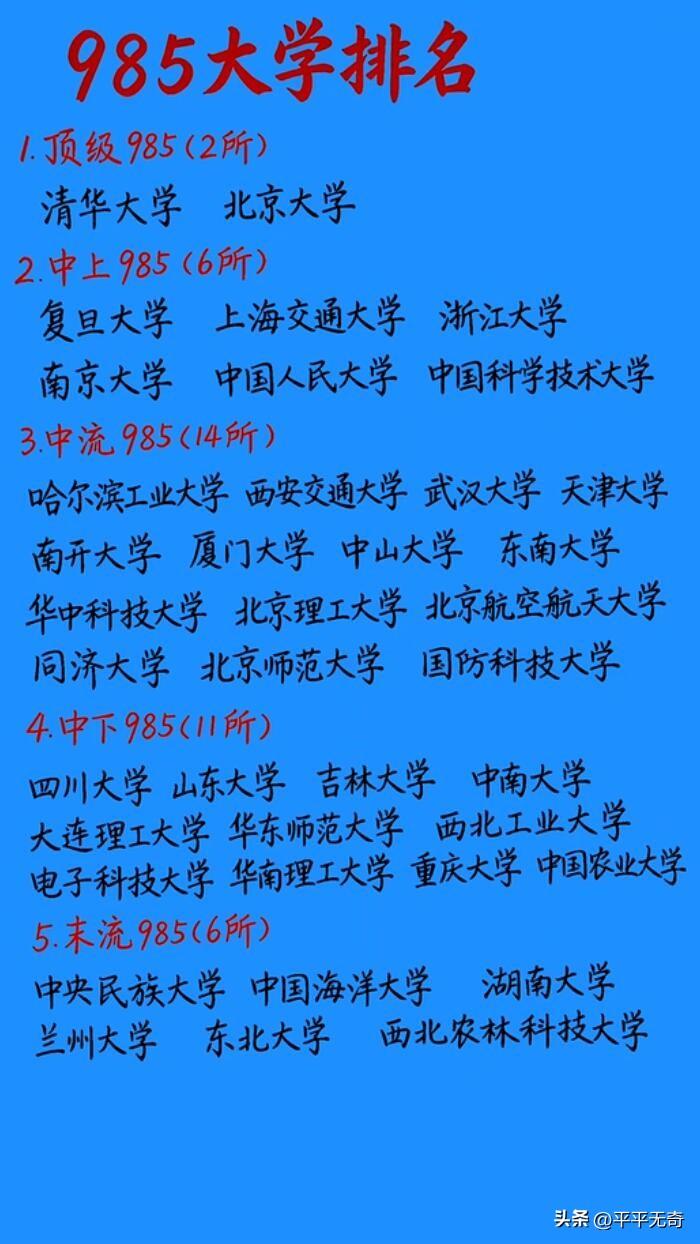 985大学排名
1.顶级985(2所)
清华大学 北京大学
2.中上985(6所)
复旦大学 上海交通大学 浙江大学
南京大学 中国人民大学 中国科学技术大学
3.中流985(14所)
哈尔滨工业大学 西安交通大学 武汉大学 天津大学
南开大学 厦门大学 中山大学 东南大学
华中科技大学 北京理工大学 北京航空航天大学
同济大学 北京师范大学 国防科技大学
4.中下985(11所)
四川大学 山东大学 吉林大学 中南大学
大连理工大学 华东师范大学 西北工业大学
电子科技大学 华南理工大学 重庆大学 中国农业大学
5.末流985(6所)
中央民族大学 中国海洋大学 湖南大学
兰州大学 东北大学 西北农林科技大学
头条 @平平无奇